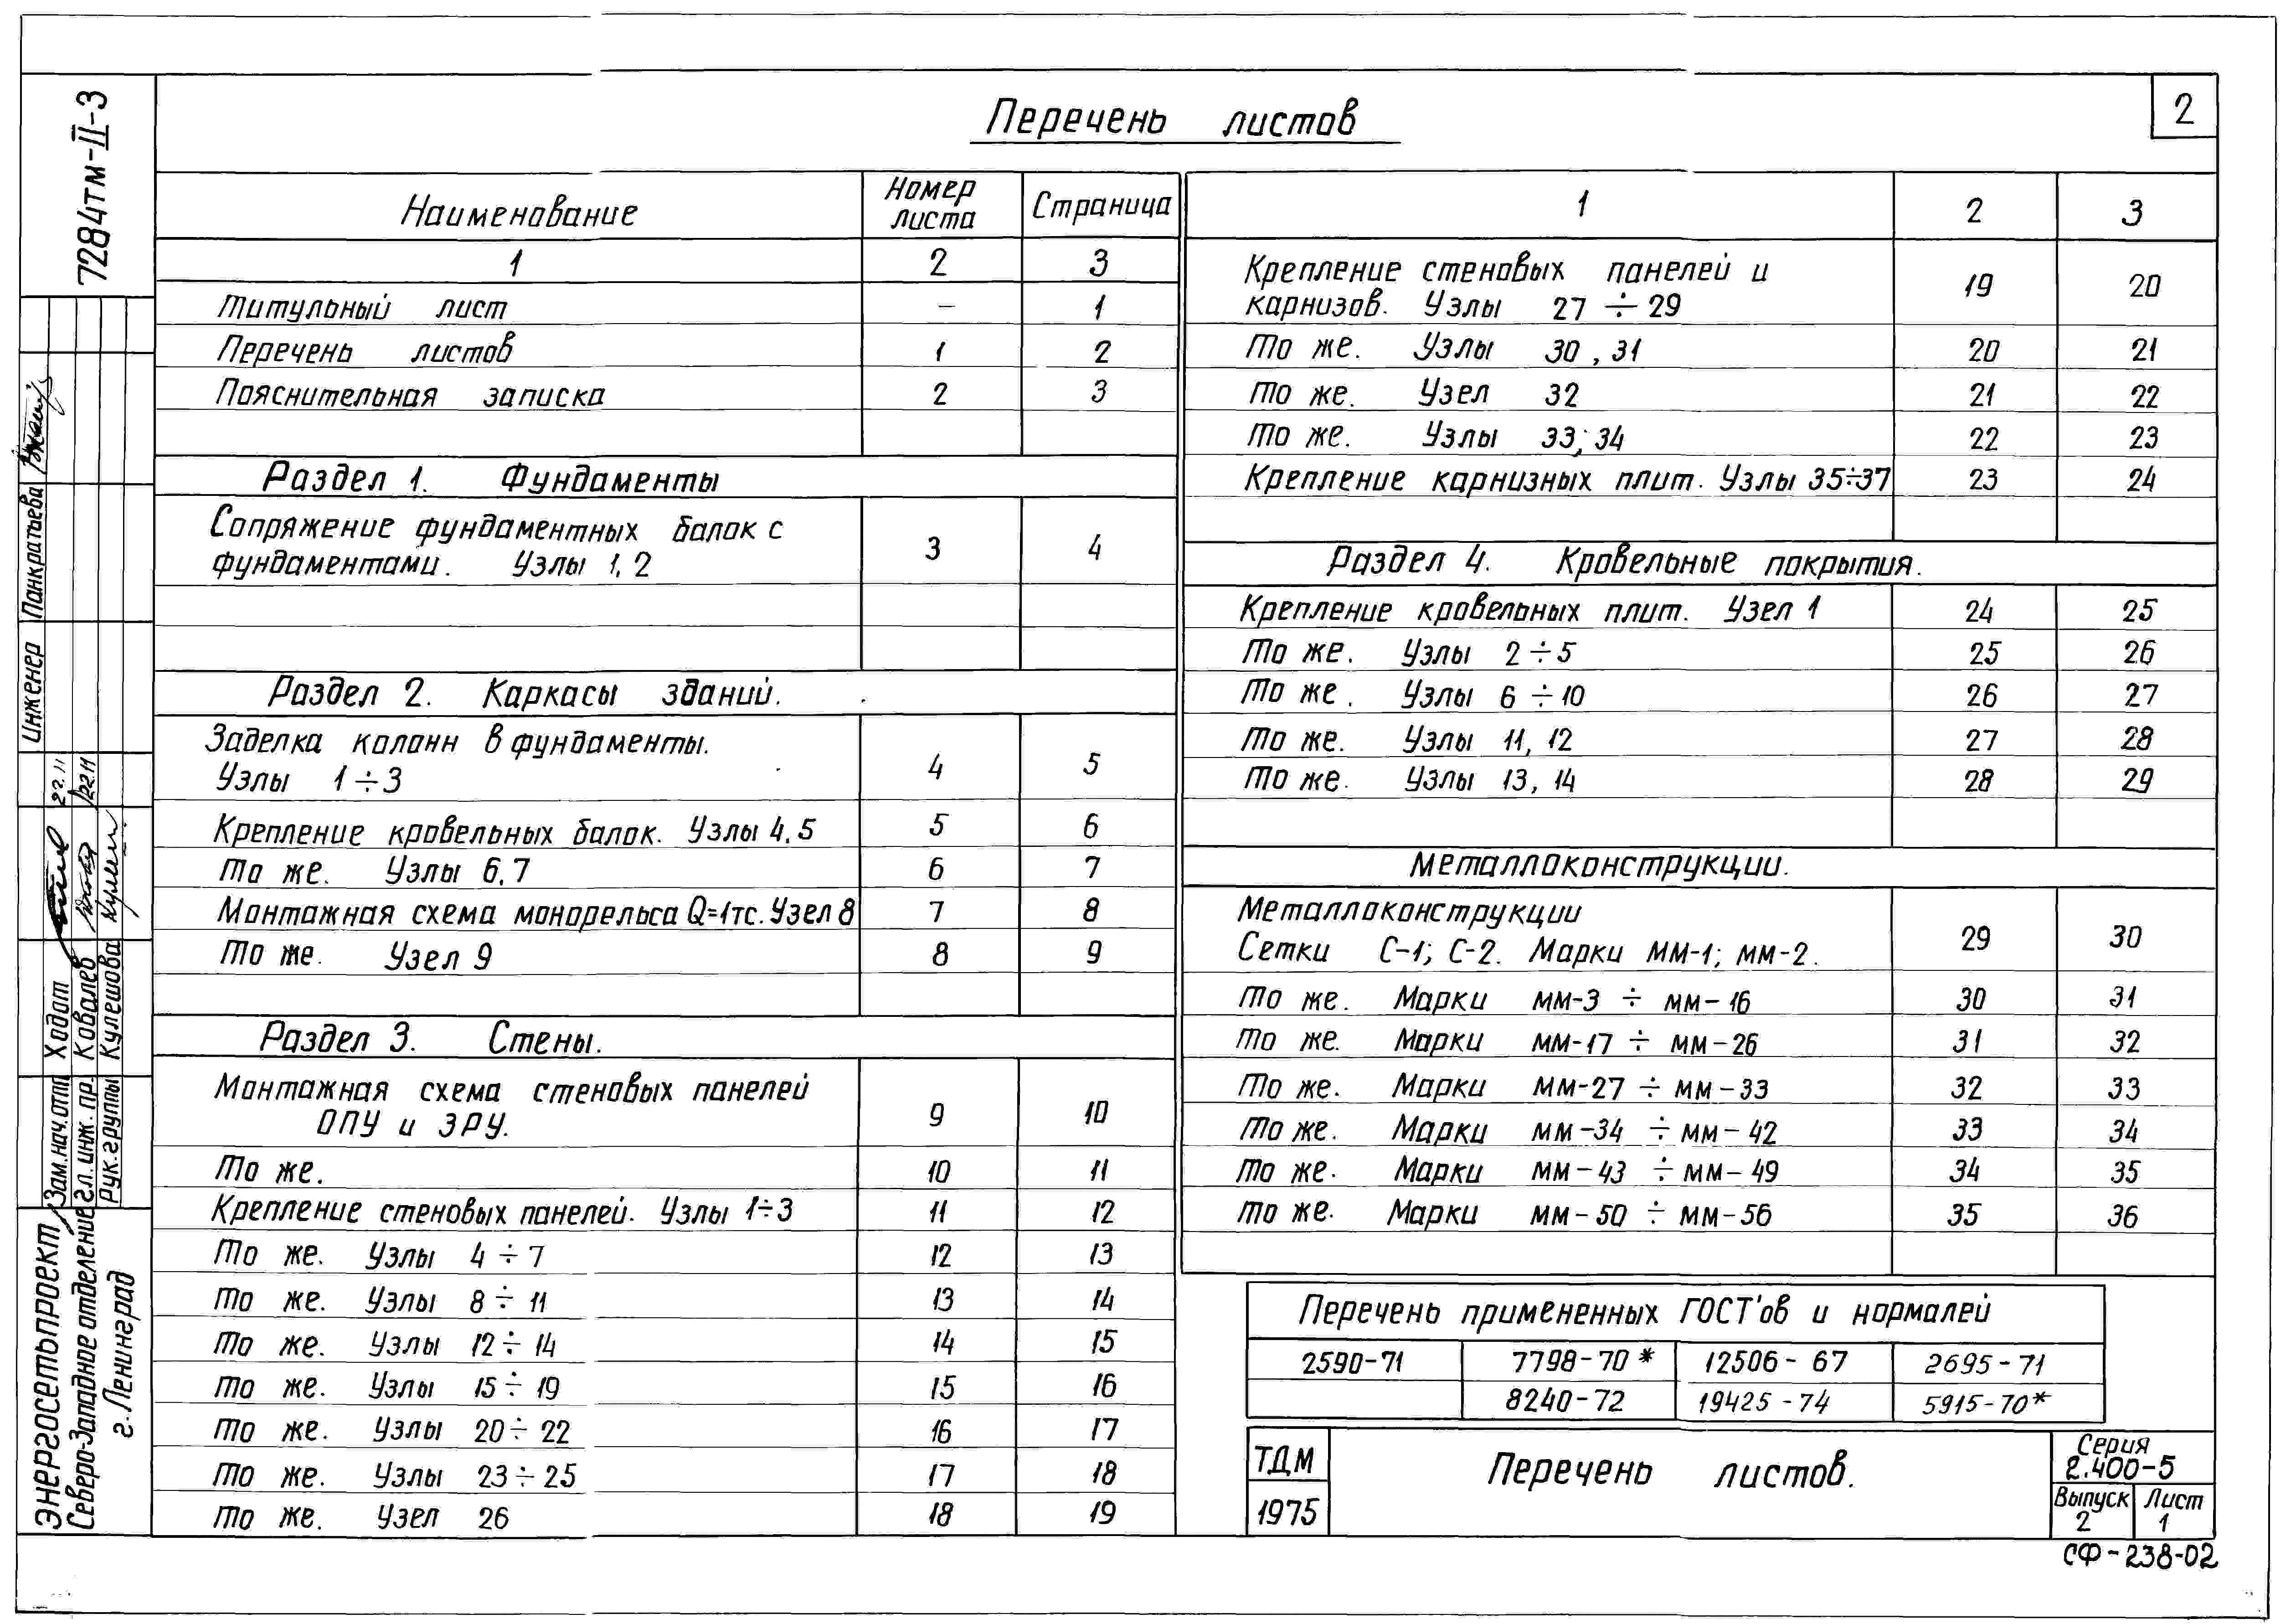 2
Перечень листов
Наименование Номер листа Страница
1 2 3
Титульный лист – 1
Перечень листов 1 2
Пояснительная записка 2 3
Раздел 1. Фундаменты
Сопряжение фундаментных балок с
фундаментами. Узлы 1,2 3 4
Раздел 2. Каркасы зданий.
Заделка колонн в фундаменты.
Узлы 1÷3 4 5
Крепление кровельных балок. Узлы 4,5 5 6
То же. Узлы 6,7 6 7
Монтажная схема монорельса Q=1тс. Узел 8 7 8
То же. Узел 9 8 9
Раздел 3. Стены.
Монтажная схема стеновых панелей
ОПУ и ЗРУ. 9 10
То же. 10 11
Крепление стеновых панелей. Узлы 1÷3 11 12
То же. Узлы 4÷7 12 13
То же. Узлы 8÷11 13 14
То же. Узлы 12÷14 14 15
То же. Узлы 15÷19 15 16
То же. Узлы 20÷22 16 17
То же. Узлы 23÷25 17 18
То же. Узел 26 18 19
1 2 3
Крепление стеновых панелей и
карнизов. Узлы 27÷29 19 20
То же. Узлы 30,31 20 21
То же. Узел 32 21 22
То же. Узлы 33; 34 22 23
Крепление карнизных плит. Узлы 35÷37 23 24
Раздел 4. Кровельные покрытия.
Крепление кровельных плит. Узел 1 24 25
То же. Узлы 2÷5 25 26
То же. Узлы 6÷10 26 27
То же. Узлы 11,12 27 28
То же. Узлы 13,14 28 29
Металлоконструкции.
Металлоконструкции
Сетки С-1; С-2. Марки ММ-1; ММ-2. 29 30
То же. Марки ММ-3÷ММ-16 30 31
То же. Марки ММ-17÷ММ-26 31 32
То же. Марки ММ-27÷ММ-33 32 33
То же. Марки ММ-34÷ММ-42 33 34
То же. Марки ММ-43÷ММ-49 34 35
То же. Марки ММ-50÷ММ-56 35 36
Перечень примененных ГОСТ'ов и нормалей
2590-71 7798-70* 12506-67 2695-71
8240-72 19425-74 5915-70*
ТДМ
1975
Перечень листов.
Серия
2.400-5
Выпуск 2
Лист 1
СФ-238-02
7284тм-II-3
Инженер Панкратьева
Зам.нач.отд. Ходот 22.11
Гл.инж.пр. Ковалев 22.11
Рук.группы Кулешова
ЭНЕРГОСЕТЬПРОЕКТ
Северо-Западное отделение
г.Ленинград